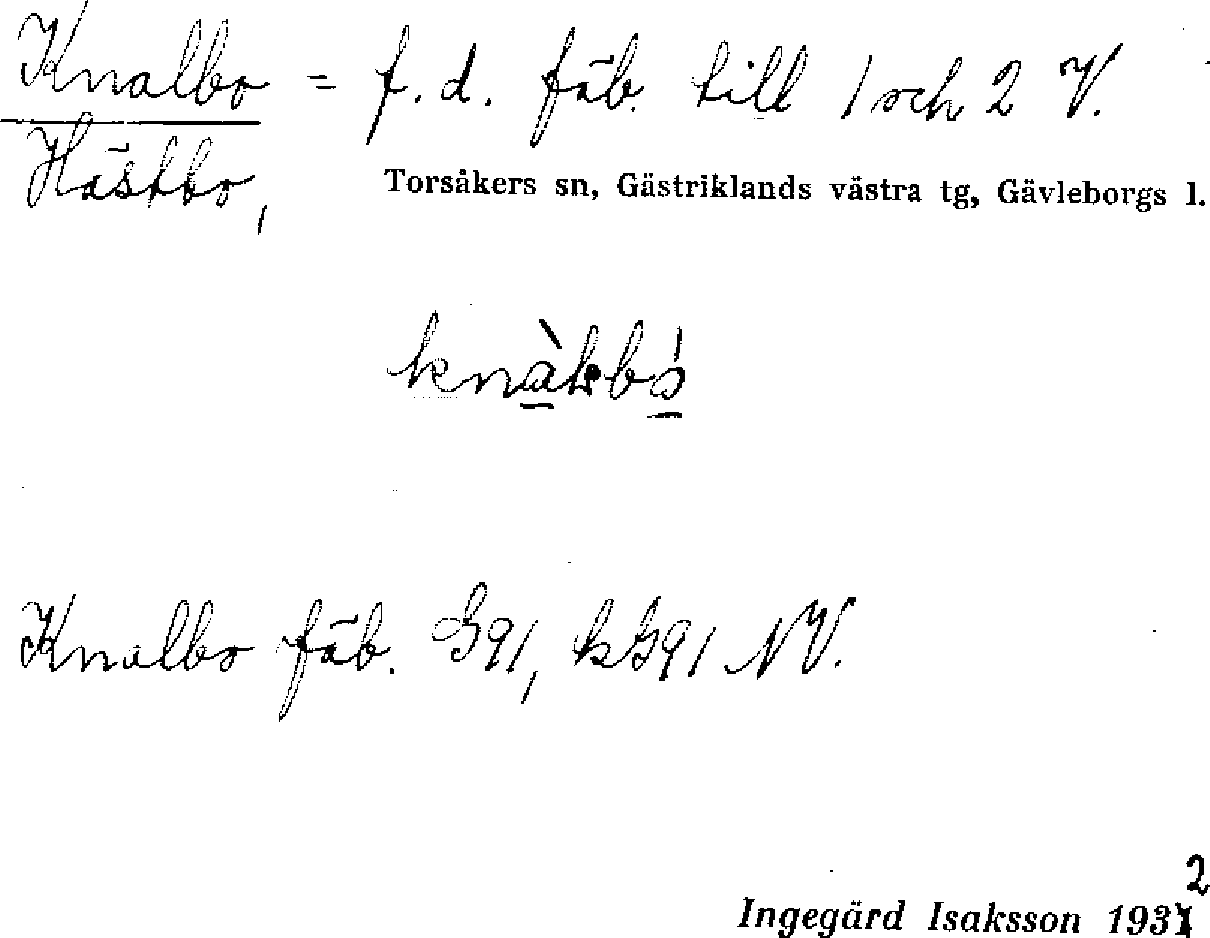 Knalbo = f. d. fäb. till 1 och 2 V.
Hästbo,
Torsåkers sn, Gästriklands västra tg, Gävleborgs l.
Knalbo fäb. G91, kG91 NV.
2
Ingegärd Isaksson 1931